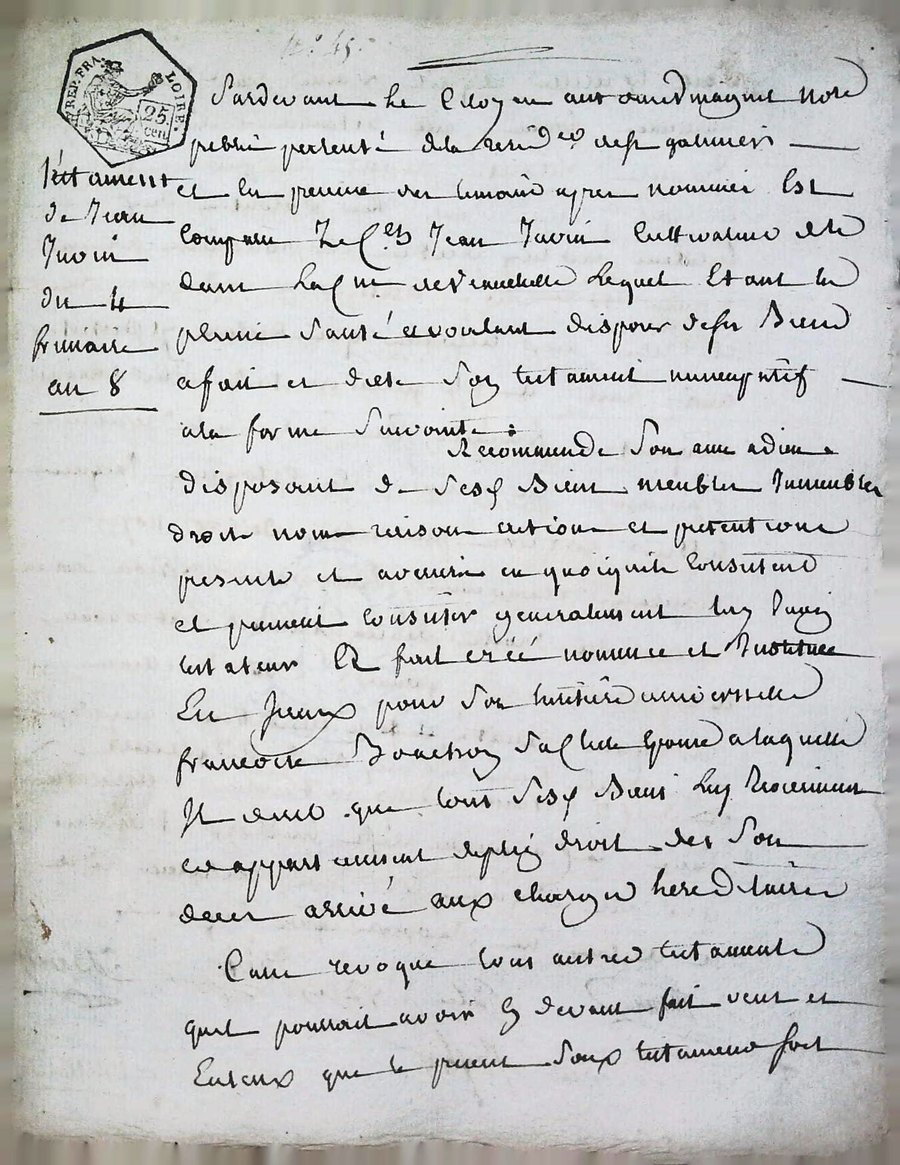 REP. FRA.
LOIRE.
25.
cen
testament
de Jean
Juvin
du 4
frimaire
an 8
Pardevant le Citoyen magnet Note
public de la resid.ce de st galmier
et en des temoins apres nommés Est
Comparu Jean Juvin Cultivateur
dans La Lequel Etant En
pleine Santé et voulant disposer de ses Biens
a fait et dicté Son testament nuncupatif
a la forme Suivante :
Recommande Son ame a dieu
disposant de Ses Biens meubles Immeubles
droits noms raisons actions et pretentions
presents et avenir en quoi quils Consistent
et peuvent Consister generalement Juvin
testateur a fait créé nommé et Institue
pour Son heritiere universelle
francoise a laquelle
Il veut que tous Ses Biens
et appartiennent de plein droit des Son
deces arrivé aux charges hereditaires
revoque tous autres testaments
quil pourrait avoir Cy devant fait veut et
Entend que le present Soux testament soit